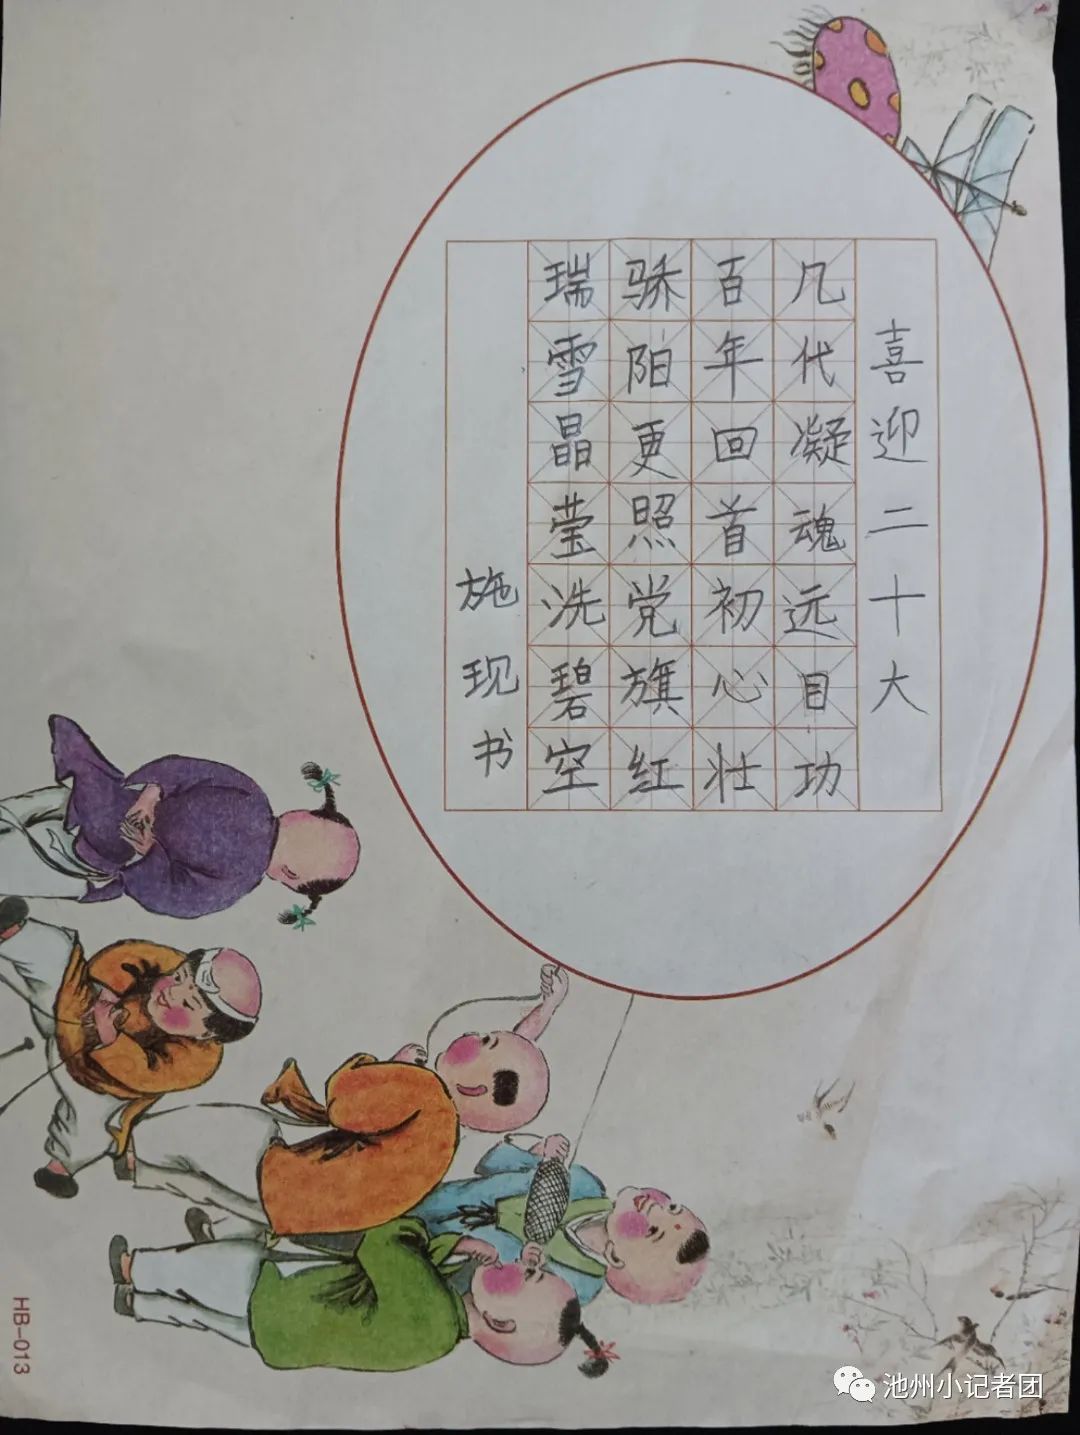 喜迎二十大
几代凝魂远目功
百年回首初心壮
骄阳更照党旗红
瑞雪晶莹洗碧空
施现书
HB-013
池州小记者团